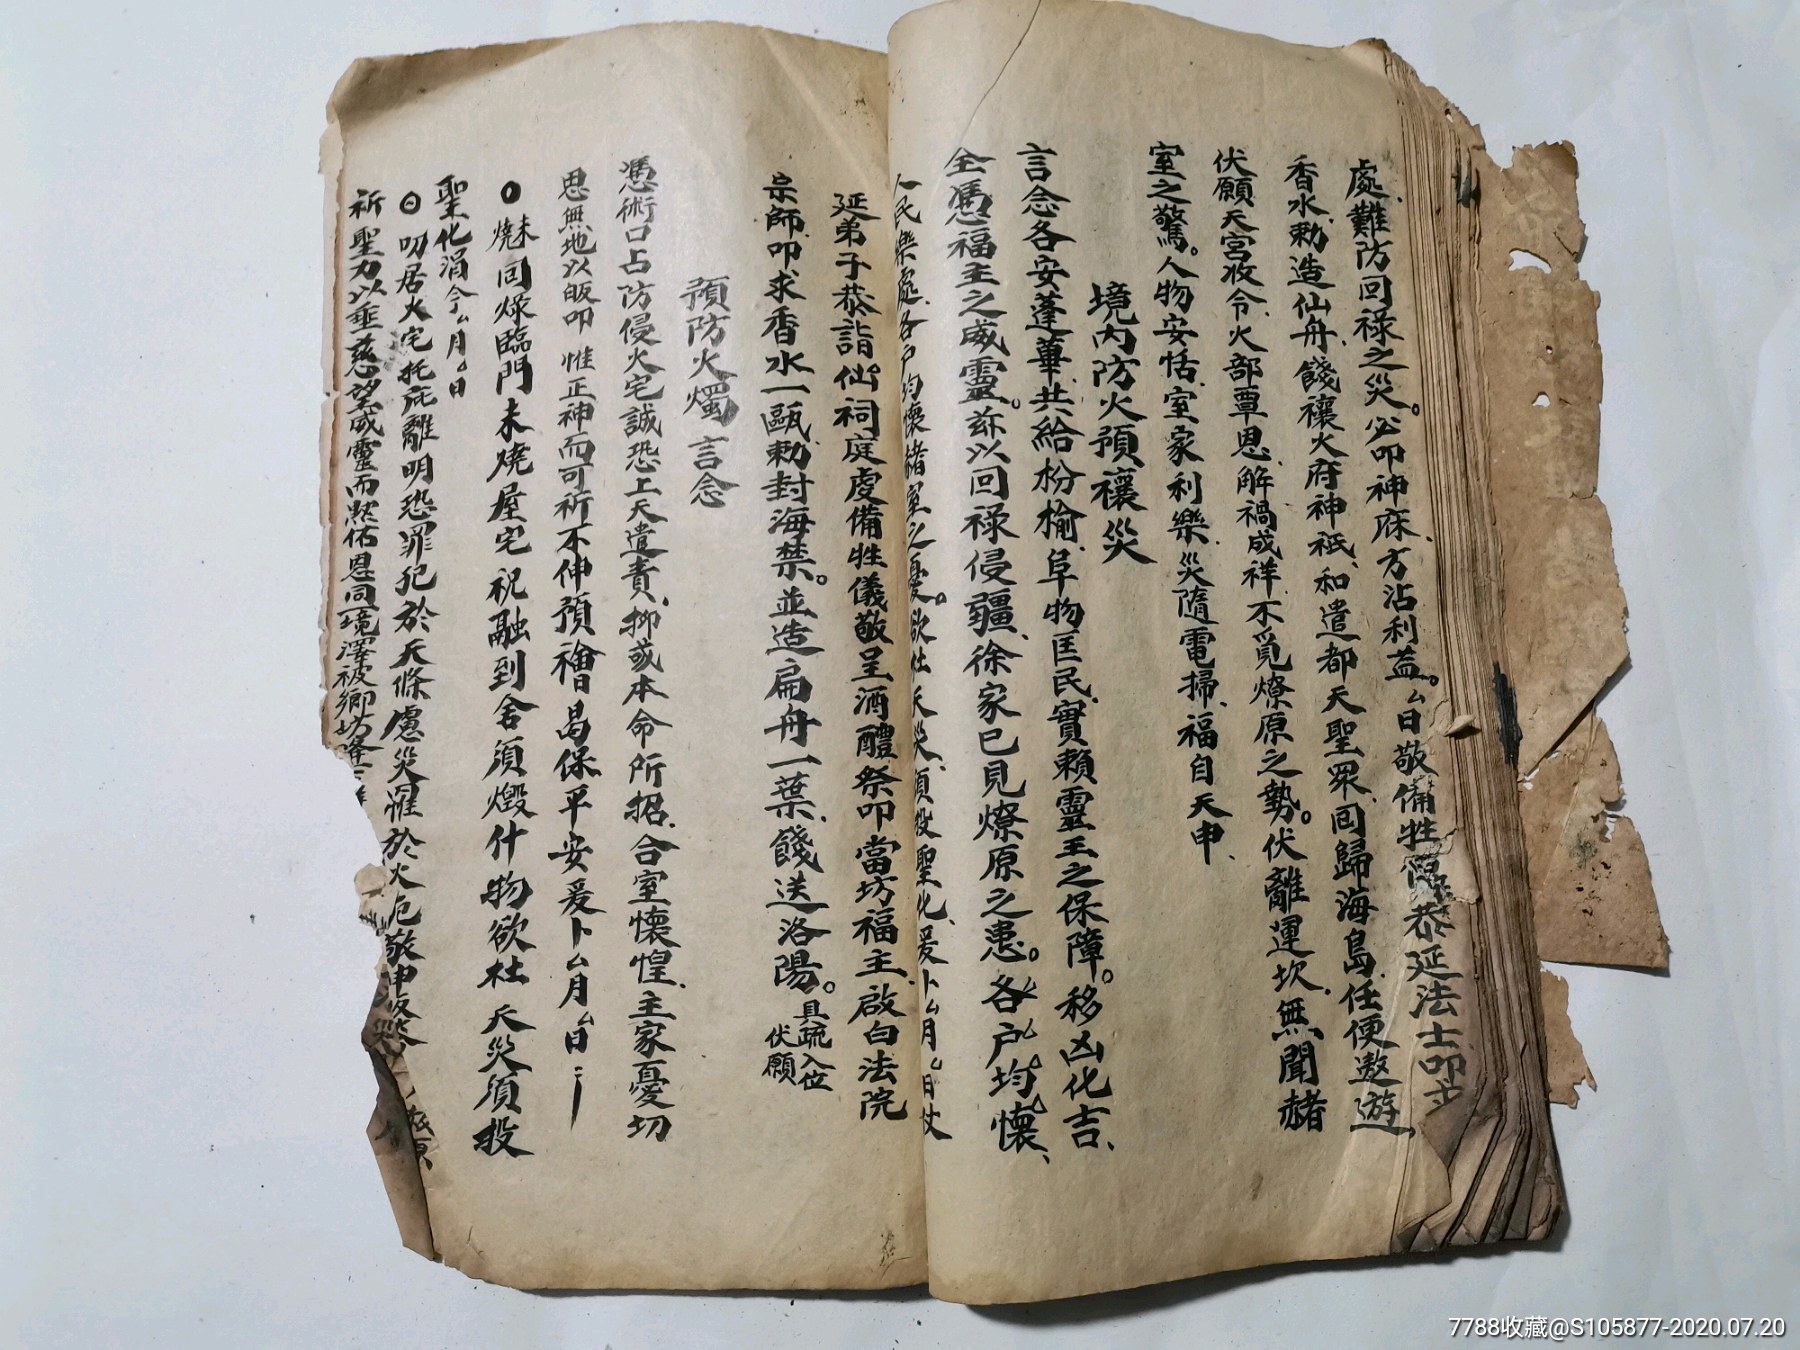 處難防回祿之災。公叩神庥方沾利益。厶日敬備牲恭延法士叩
香水勅造仙舟餞禳火府神祇、和遣都天聖眾、同歸海島、任便遨遊、
伏願天宮攸令、火部覃恩、解禍成祥、不覓燎原之勢。伏離運坎、無聞赭
室之驚。人物安恬、室家利樂、災隨電掃、福自天申、
境內防火預禳災
言念各安蓬蓽、共給枌榆、阜物匡民、實賴靈王之保障。移凶化吉、
全憑福主之威靈。茲以回祿侵疆、徐家已見燎原之患。各戶均懷、
人民樂處、各戶均懷赭室之憂。欲杜天災、須投聖化、爰卜厶月厶日仗
延弟子恭詣仙祠庭虔備牲儀敬呈酒醴祭叩當坊福主、啟白法院
宗師、叩求香水一甌、勅封海禁。並造扁舟一葉、餞送洛陽。具疏入位 伏願
預防火燭 言念
憑術口占防侵火宅誠恐上天遣責、抑或本命所招、合室懷惶、主家憂切
思無地以皈叩 惟正神而可祈不伸預禬曷保平安爰卜厶月厶日
○ 燒未 回祿臨門未燒屋宅祝融到舍須燬什物欲杜天災須投
聖化涓今厶月厶日
○ 叨居火宅托庇離明恐罪犯於天條慮災罹於火厄敬申
祈聖力以垂慈望威靈而默佑恩同境澤被鄉坊
7788收藏@S105877-2020.07.20